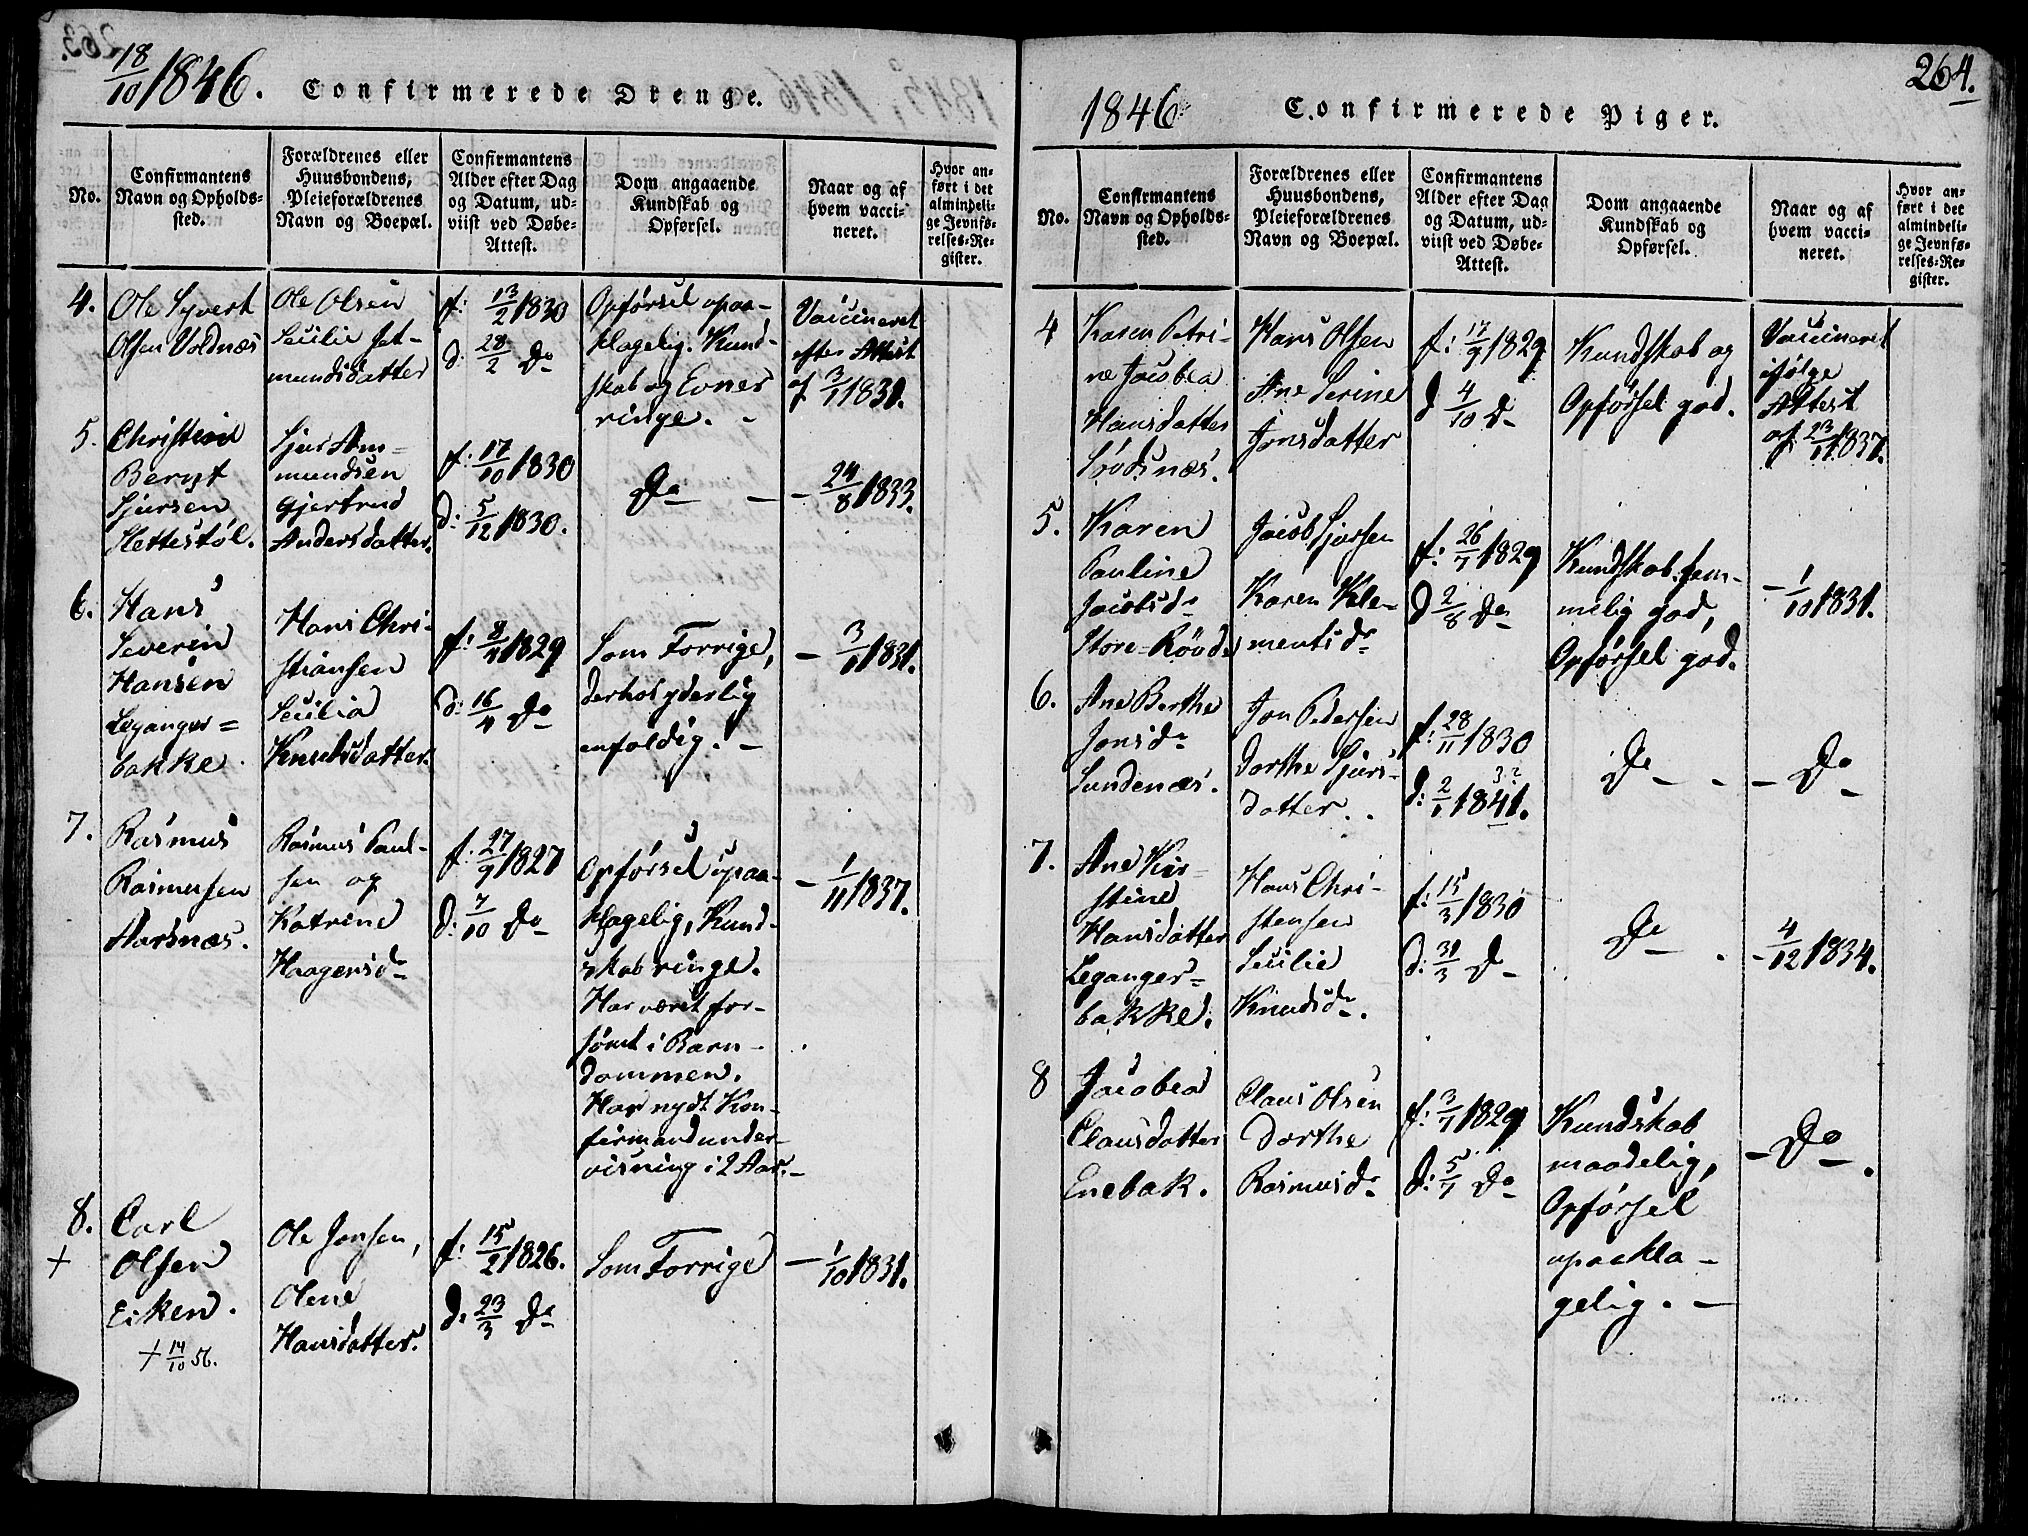 18/10 1846. Confirmerede Drenge.
No.
Confirmantens
Navn og Opholds-
sted.
Forældrenes eller
Huusbondens,
Pleieforældrenes
Navn og Boepæl.
Confirmantens
Alder efter Dag
og Datum, ud-
viist ved Døbe-
Attest.
Dom angaaende
Kundskab og
Opførsel.
Naar og af
hvem vacci-
neret.
Hvor an-
ført i det
almindeli-
ge Jevnfø-
relses-Re-
gister.
4.
Ole Syvert
Olsen Voldnæs
Ole Olsen
Secilie Jet-
mundsdatter
f: 13/2 1830
d: 28/2 Do
Opførsel upaa-
klagelig. Kund-
skab og Evner
ringe. -
Vaccineret
efter Attest
af 3/11 1831.
5.
Christian
Bernt
Sjursen
Hettestøl.
Sjur Am-
mundsen
Gjertrud
Andersdatter.
f: 17/10 1830
d: 5/12 1830.
Do -
- 24/8 1833.
6.
Hans
Severin
Hansen
Leganger=
bakke
Hans Chri-
stiansen
Secilia
Knudsdatter.
f: 8/4 1829
d: 16/4 Do
Som Forrige,
derhos yderlig
enfoldig. -
- 3/11 1831.
7.
Rasmus
Rasmussen
Aarsnæs.
Rasmus Paul-
sen og
Katrine
Haagensd.
f: 27/9 1827
d: 7/10 Do
Opførsel upaa-
klagelig, Kund-
skab ringe.
Har været for-
sømt i Barn-
dommen.
Har nydt Kon-
firmandunder-
visning i 2 Aar. -
- 1/11 1837.
8.
+
Carl
Olsen
Eiken.
+ 14/10 56.
Ole Jonsen,
Olene
Hansdatter.
f: 15/2 1826.
d. 23/3 Do
Som Forrige
- 1/10 1831.
264.
1846 Confirmerede Piger.
No.
Confirmantens
Navn og Opholds-
sted.
Forældrenes eller
Huusbondens,
Pleieforældrenes
Navn og Boepæl.
Confirmantens
Alder efter Dag
og Datum, ud-
viist ved Døbe-
Attest.
Dom angaaende
Kundskab og
Opførsel.
Naar og af
hvem vacci-
neret.
Hvor an-
ført i det
almindeli-
ge Jevnfø-
relses-Re-
gister.
4
Karen Petri-
ne Jacobea
Hansdatter
Hans Olsen
Ane Serine
Jonsdatter
f: 17/9 1829
d 4/10 Do
Kundskab og
Opførsel god.
Vaccineret
ifølge
Attest
af 23/11 1837.
5.
Karen
Pauline
Jacobsd.
Store-Røvde
Jacob Sjursen
Karen Kle-
mentsd.
f: 26/7 1829
d 2/8 Do
Kundskab tem-
melig god,
Opførsel god.
- 1/10 1831.
6.
Ane Berthe
Jonsd.
Sundenæs.
Jon Pedersen
Dorthe Sjurs-
datter.
f: 28/11 1830
d: 2/1 1841.
3?
Do -
- Do
7.
Ane Kir-
stine
Hansdatter
Leganger=
bakke.
Hans Chri-
stensen
Secilie
Knudsd.
f: 15/3 1830
d: 31/3 Do
Do -
- 4/12 1834.
8
Jacobea
Clausdatter
Enebak.
Claus Olsen
Dorthe
Rasmusd.
f: 3/7 1829
d: 5/7 Do
Kundskab
maadelig,
Opførsel
upaakla-
gelig. -
- Do.